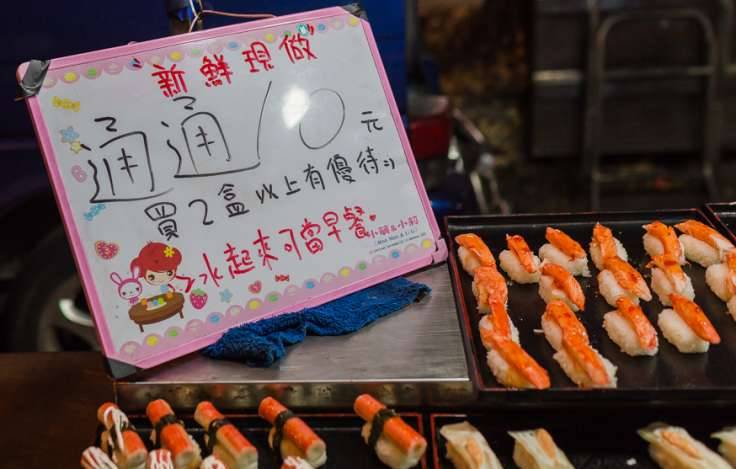 新鮮現做
通通10元
買2盒以上有優待:)
冰起來可當早餐